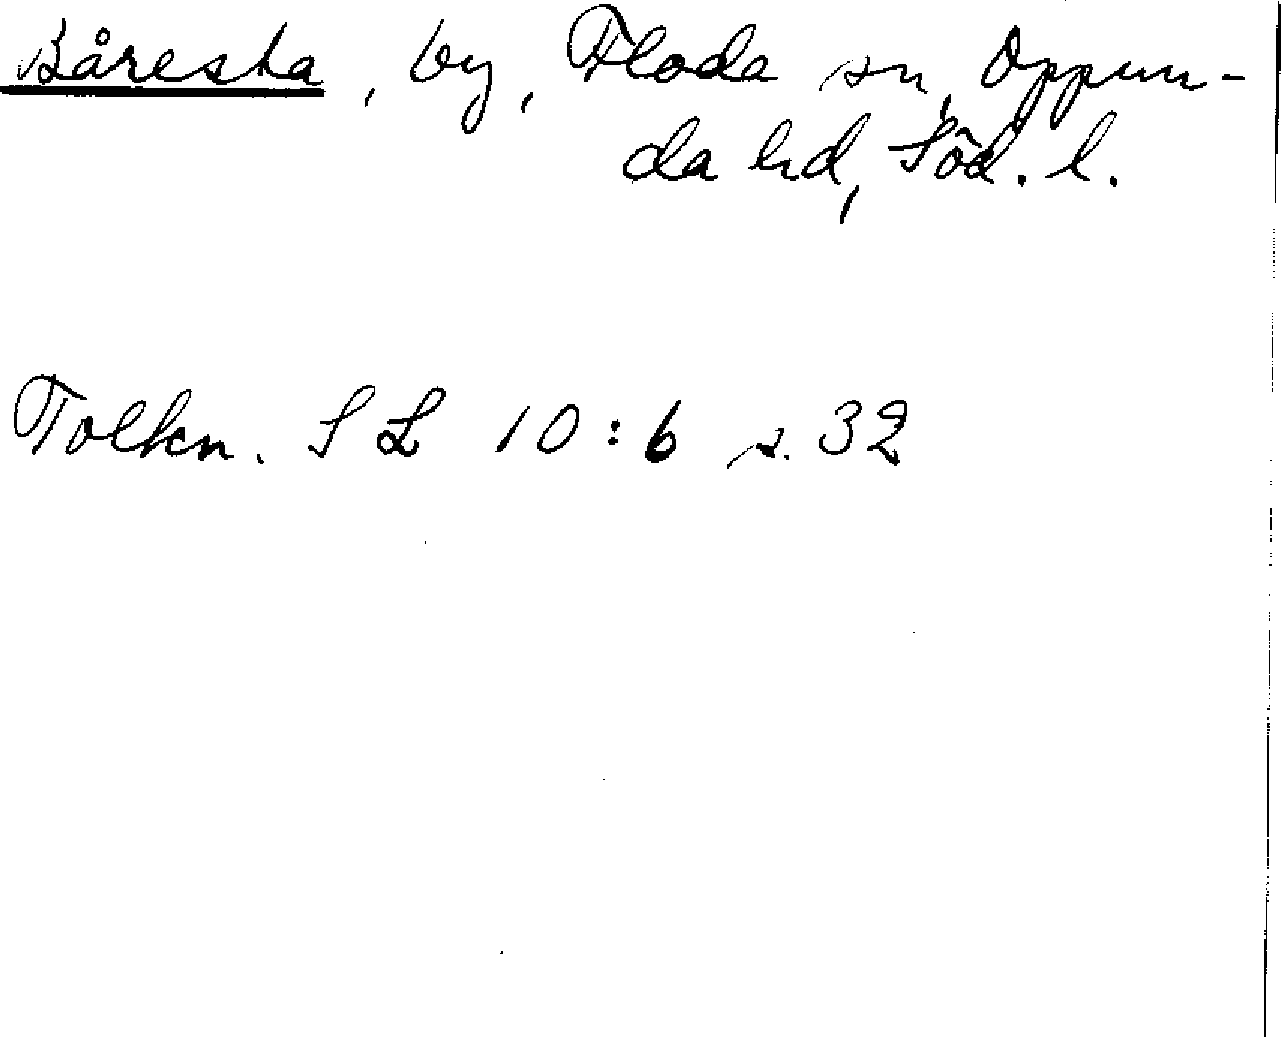 Båresta, by, Floda sn, Oppun-
da hd, Söd. l.
Tolkn. SL 10:6 s. 32